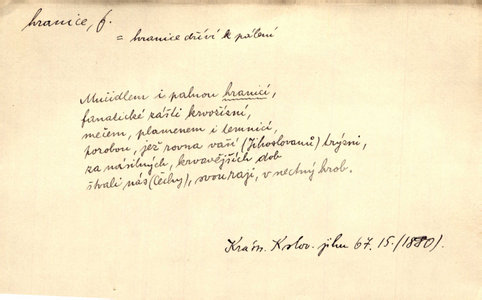 hranice, f.
= hranice dříví k pálení
Mučidlem i palnou hranicí,
fanatické zášti krvořízní,
mečem, plamenem i temnicí,
porobou, jež rovna vaší (Jihoslovanů) trýzni,
za násilných, krvavějších dob
štvali nás (Čechy), svou raji, v nectný hrob.
Krásn. K slov. jihu 67. 15. (1880).